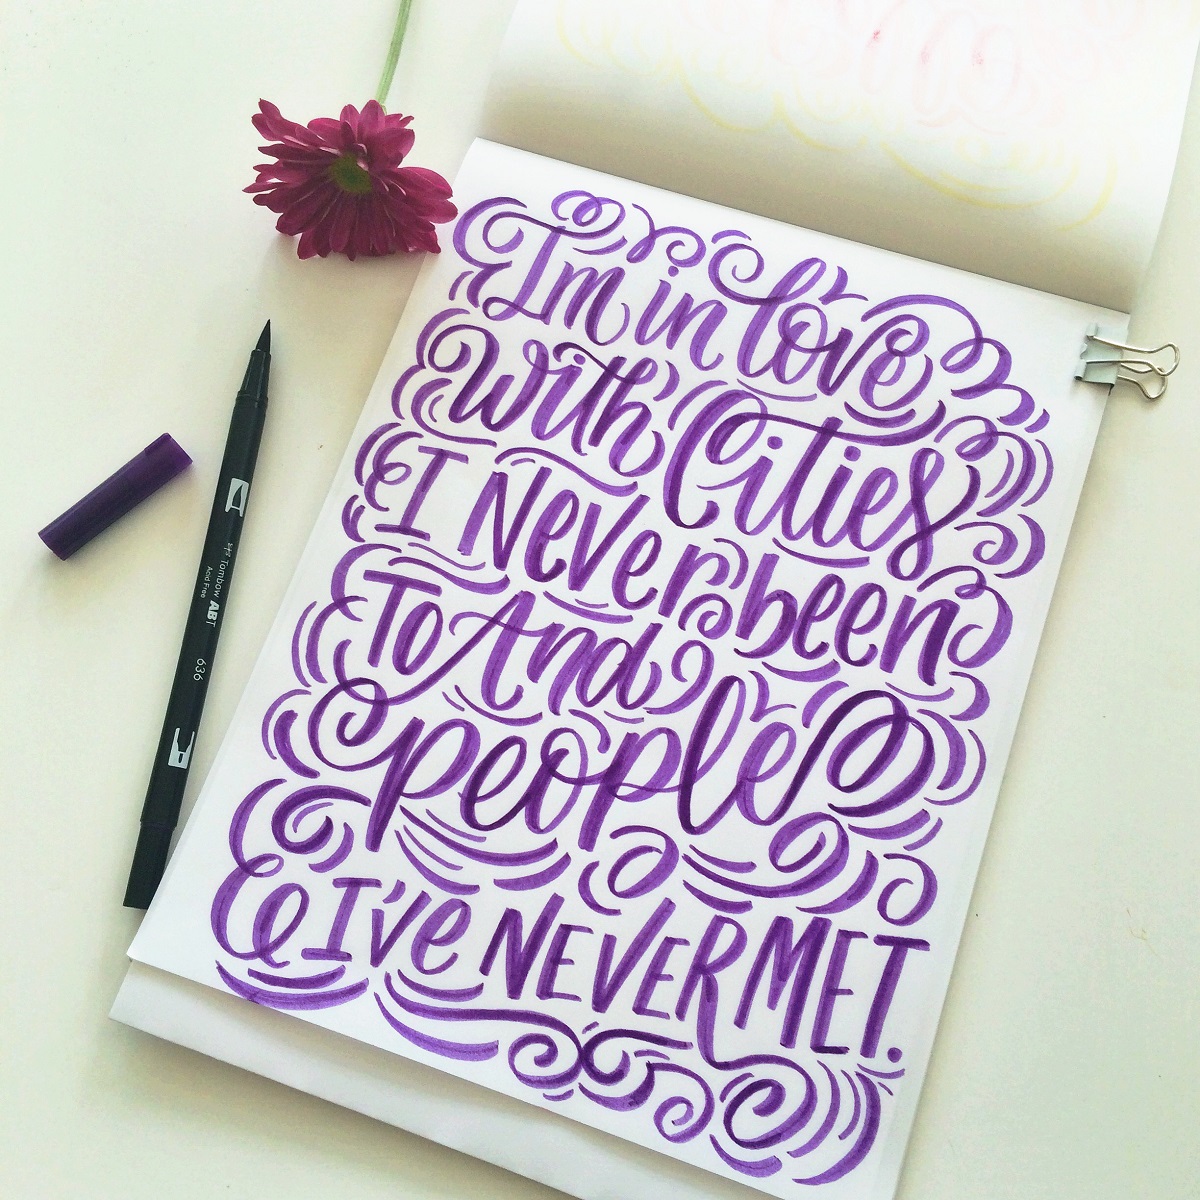 I'm in love
With Cities
I Never been
To And
people
I've NEVER MET.
Tombow ABT
Acid Free
636